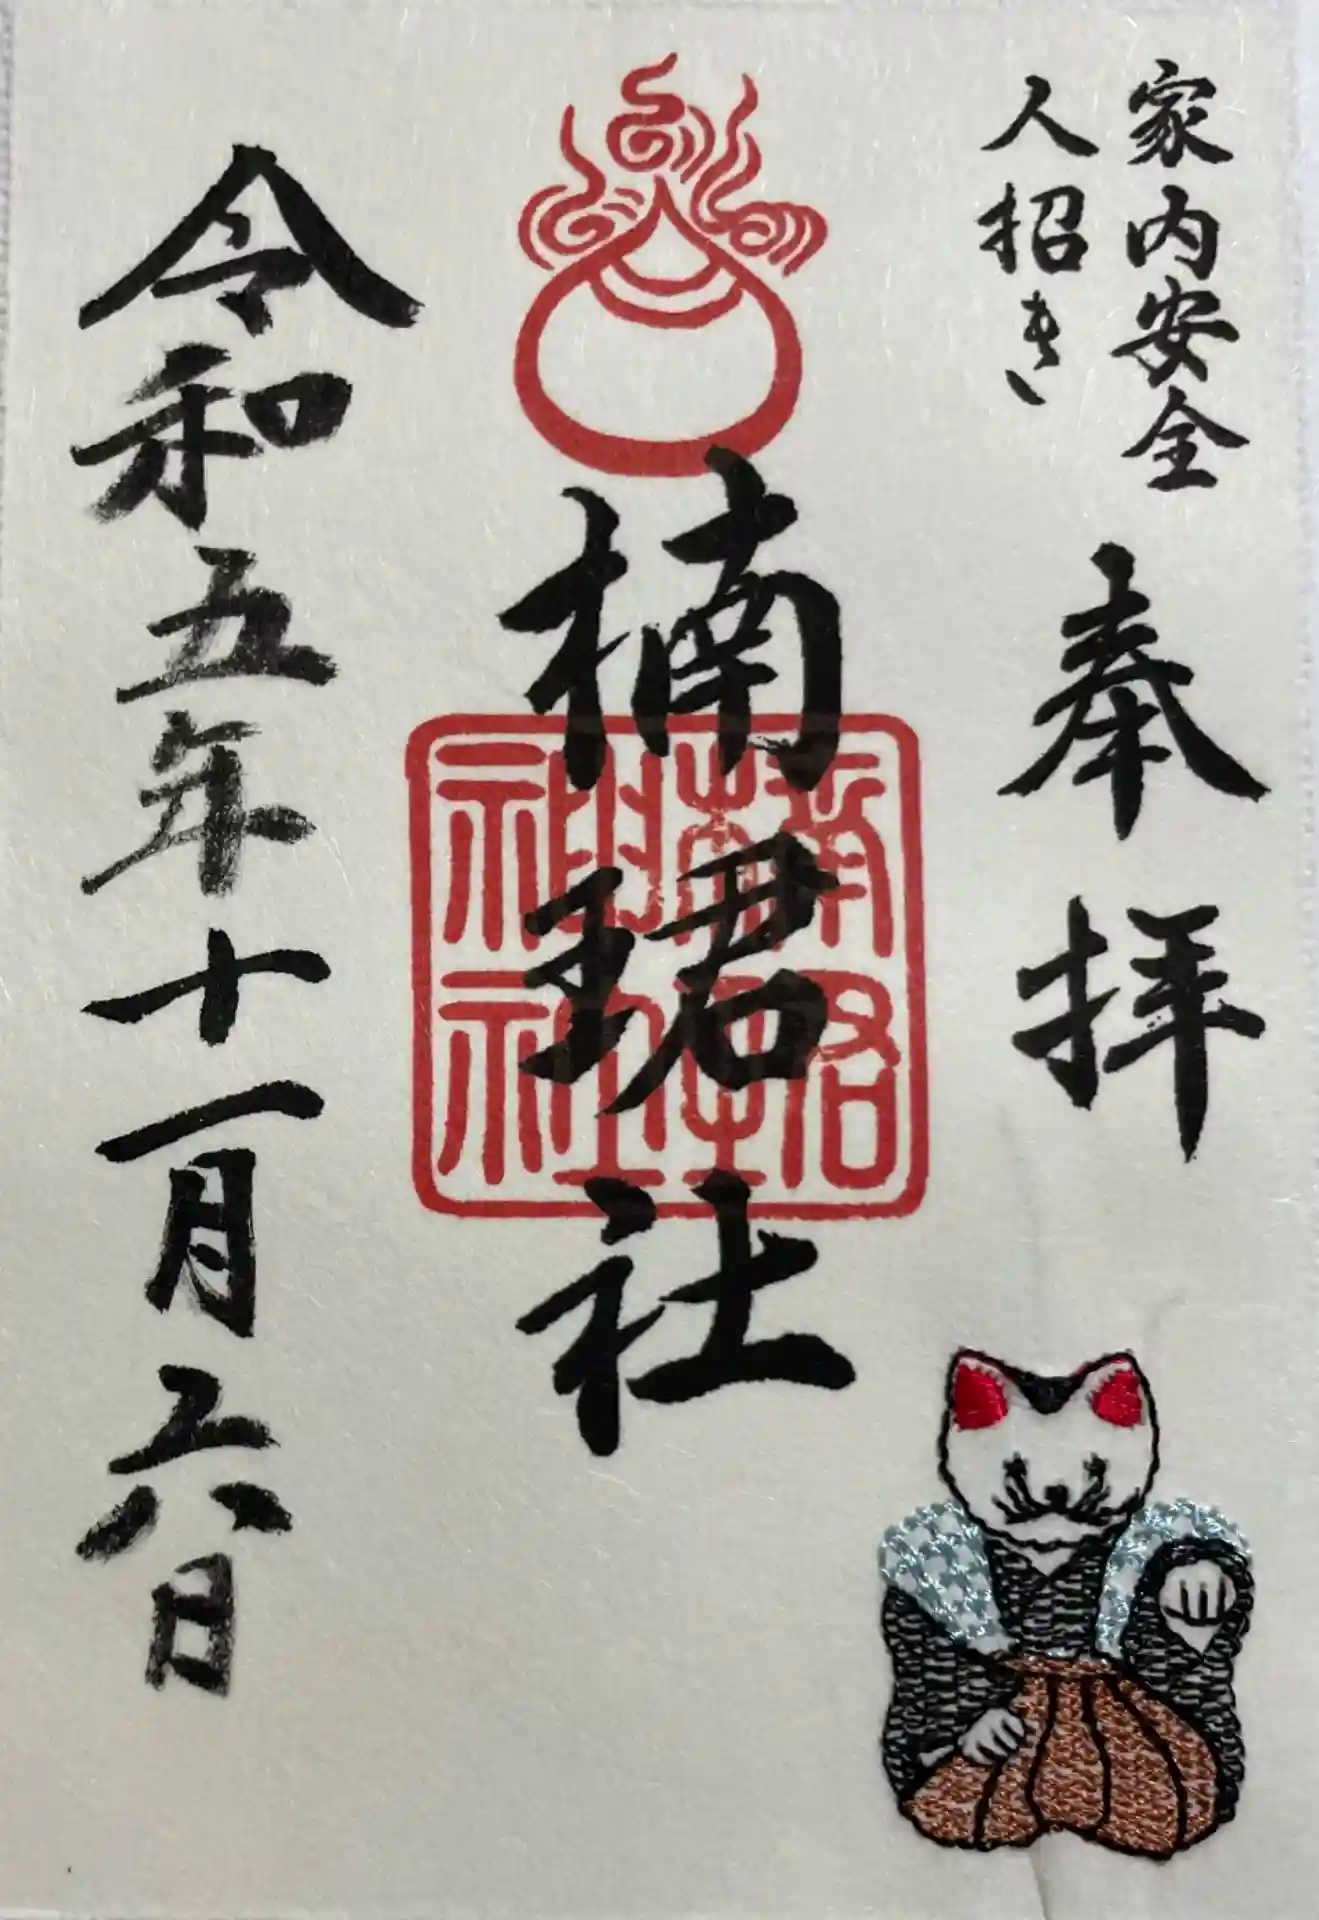 家内安全
人招き
奉拝
楠珺社
楠珺
神社
令和五年十一月六日